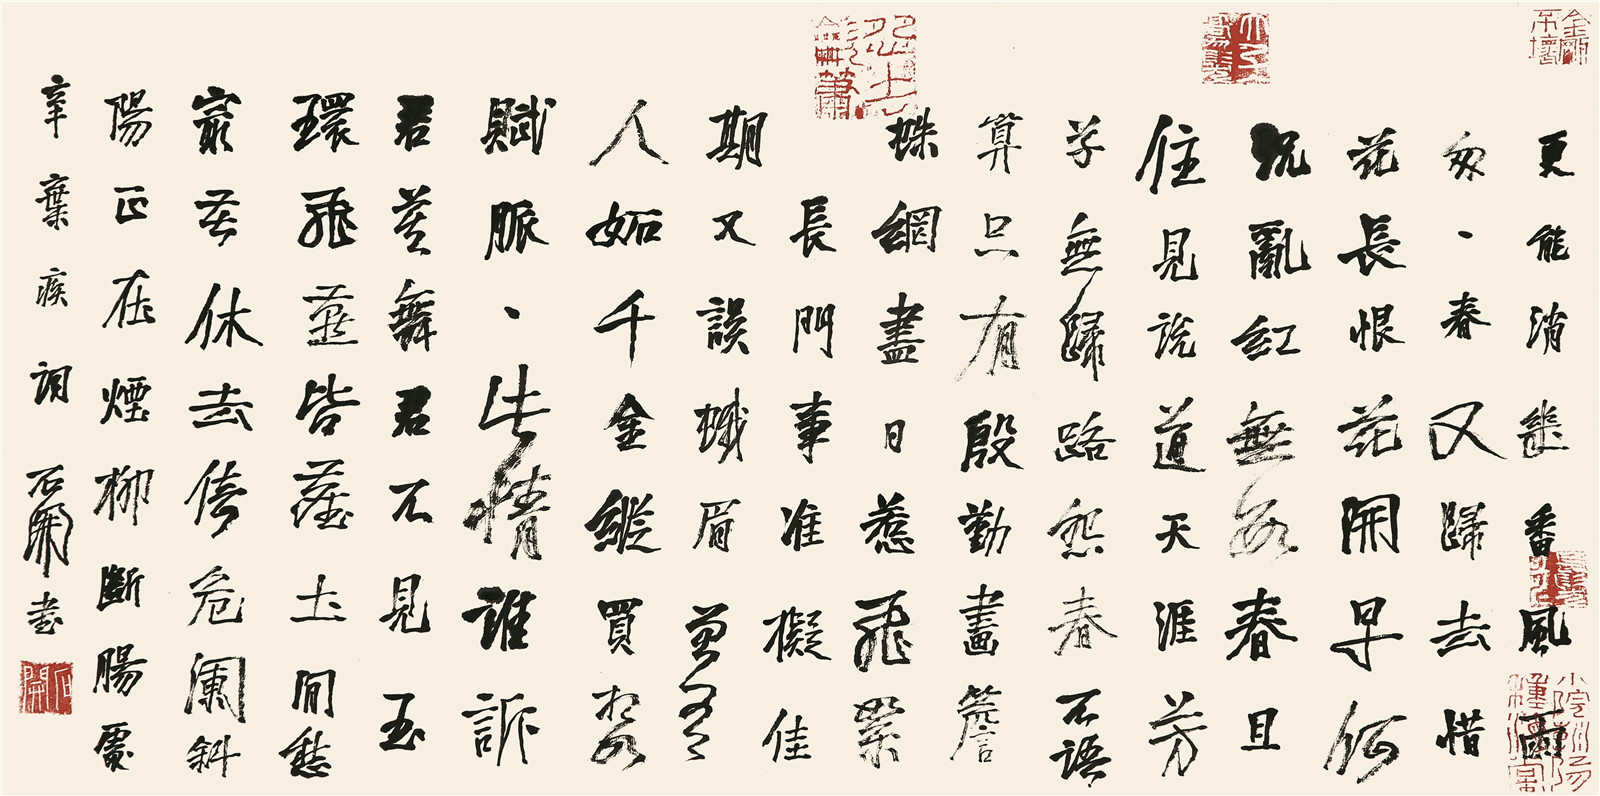 更能消幾番風雨
匆、春又歸去惜
花長恨花開早何
況亂紅無數春且
住見說道天涯芳
草無歸路怨春不語
算只有殷勤畫簷
蛛網盡日惹飛絮
長門事准擬佳
期又誤蛾眉曾有
人妬千金縱買相如
賦脈、此情誰訴
君莫舞君不見玉
環飛燕皆塵土閒愁
最苦休去倚危闌斜
陽正在煙柳斷腸處
辛棄疾詞 石開書
石開
金剛不壞